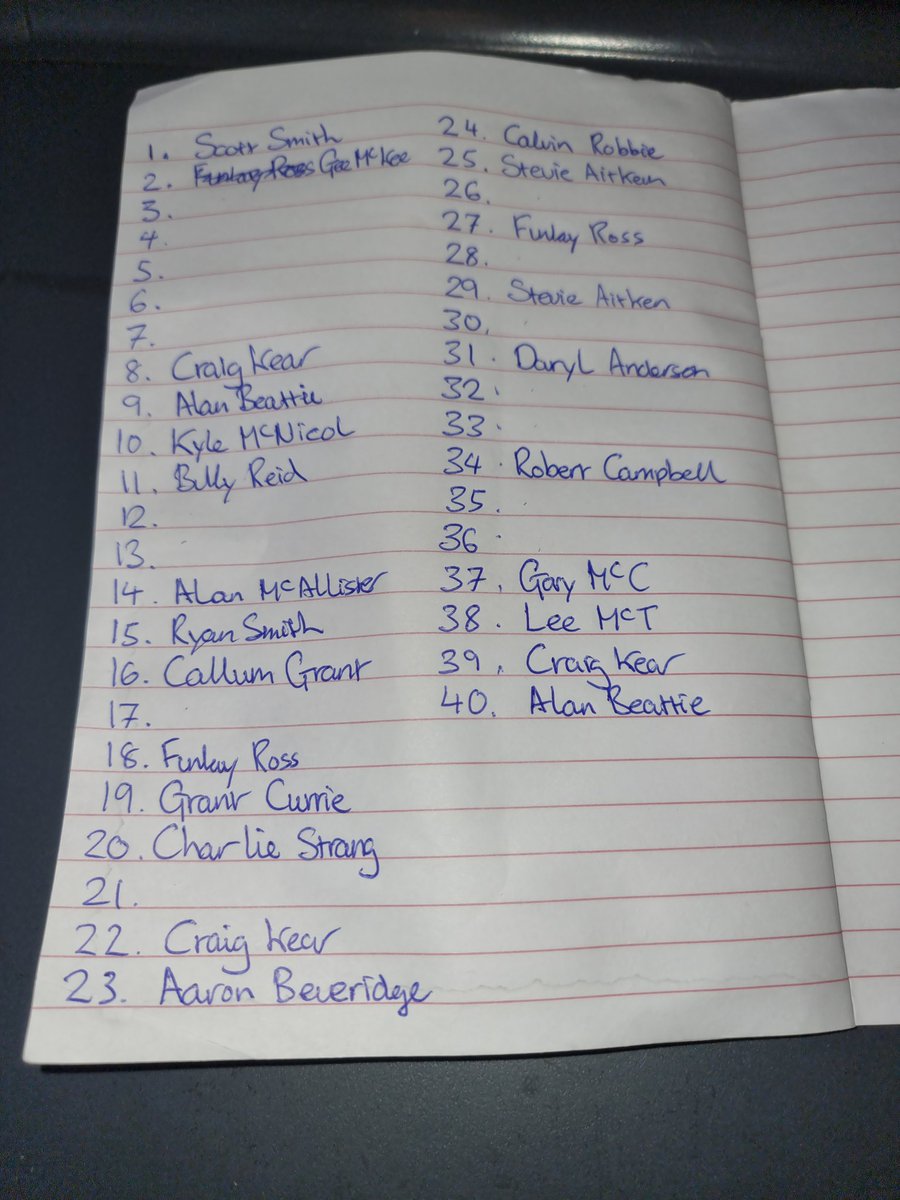 1. Scott Smith
2. Finlay Ross Gee McKee
3.
4.
5.
6.
7.
8. Craig Kear
9. Alan Beattie
10. Kyle McNicol
11. Billy Reid
12.
13.
14. Alan McAllister
15. Ryan Smith
16. Callum Grant
17.
18. Finlay Ross
19. Grant Currie
20. Charlie Strang
21.
22. Craig Kear
23. Aaron Beveridge
24. Calvin Robbie
25. Stevie Aitken
26.
27. Finlay Ross
28.
29. Stevie Aitken
30.
31. Daryl Anderson
32.
33.
34. Robert Campbell
35.
36.
37. Gary McC
38. Lee McT
39. Craig Kear
40. Alan Beattie